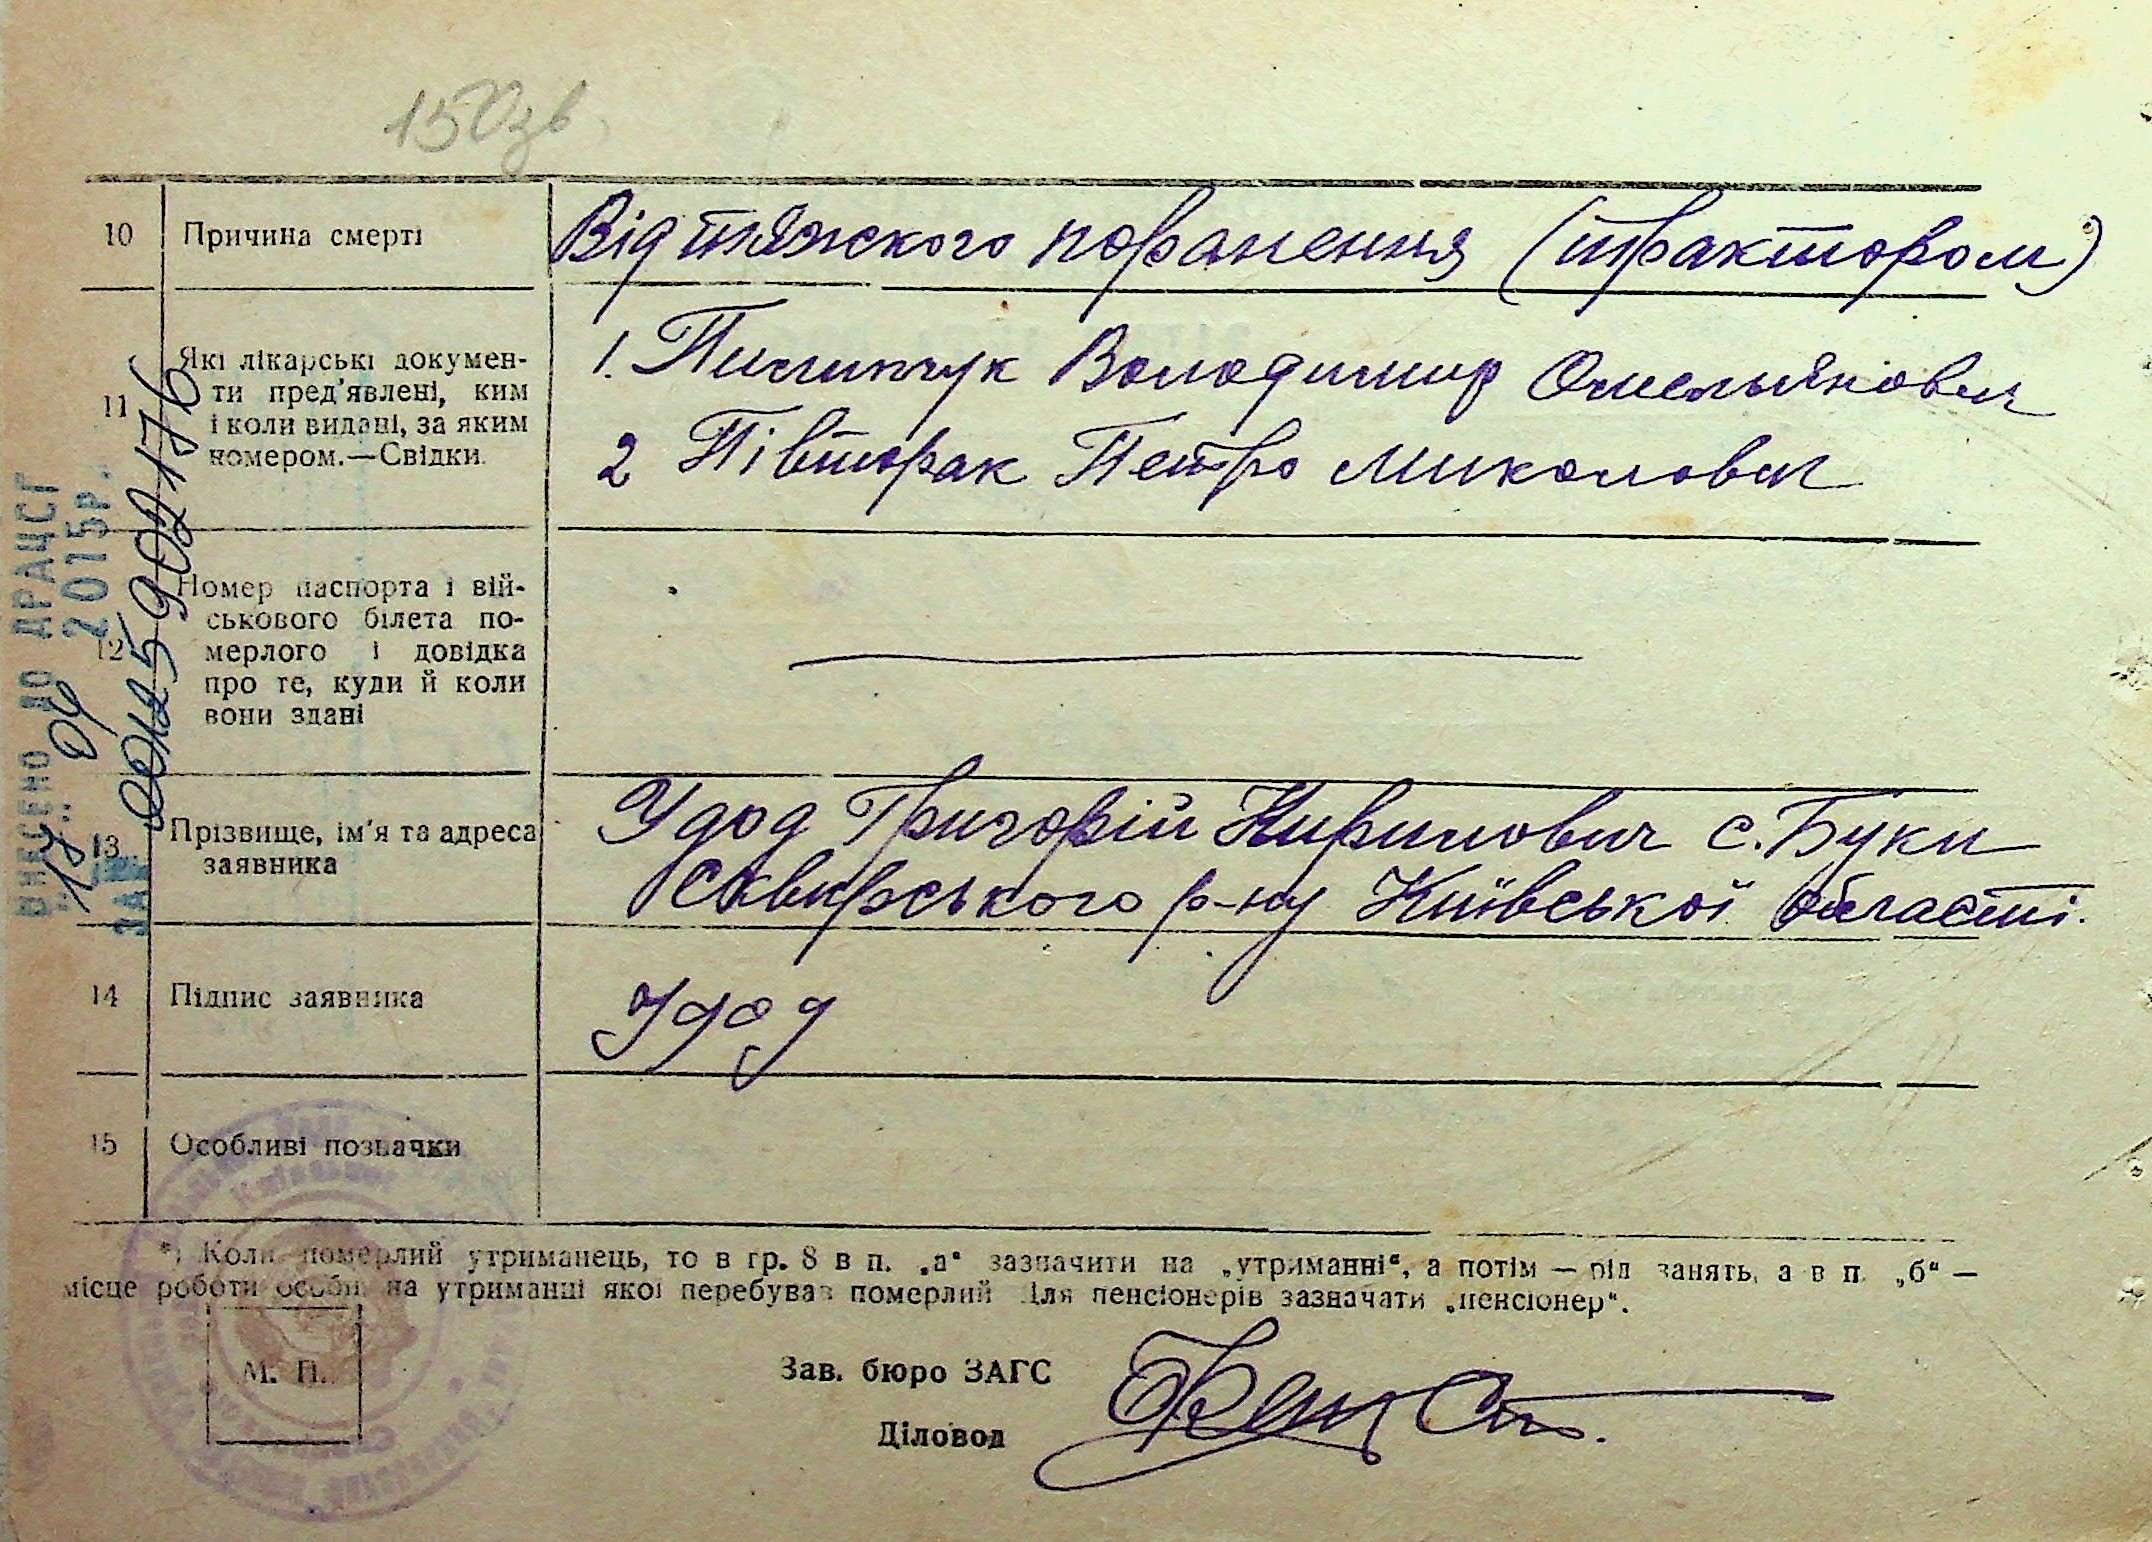 150зв
10 Причина смерті Від тяжского поранення (трактором)
11 Які лікарські докумен-
ти пред'явлені, ким
і коли видані, за яким
номером.—Свідки.
1. Пилипчук Володимир Омельянович
2 Півторак Петро Миколович
12 Номер паспорта і вій-
ськового білета по-
мерлого і довідка
про те, куди й коли
вони здані
13 Прізвище, ім'я та адреса
заявника
Удод Григорій Кирилович с. Буки
Сквирського р-ну Київської області.
14 Підпис заявника Удод
15 Особливі позначки
*) Коли померлий утриманець, то в гр. 8 в п. „а“ зазначити на „утриманні“, а потім — рід занять, а в п. „б“ —
місце роботи особи, на утриманні якої перебував померлий. Для пенсіонерів зазначати „пенсіонер“.
М. П.
Зав. бюро ЗАГС
Діловод
ВНЕСЕНО ДО ДРАЦСГ
2015р.
ЗА № 00125902176